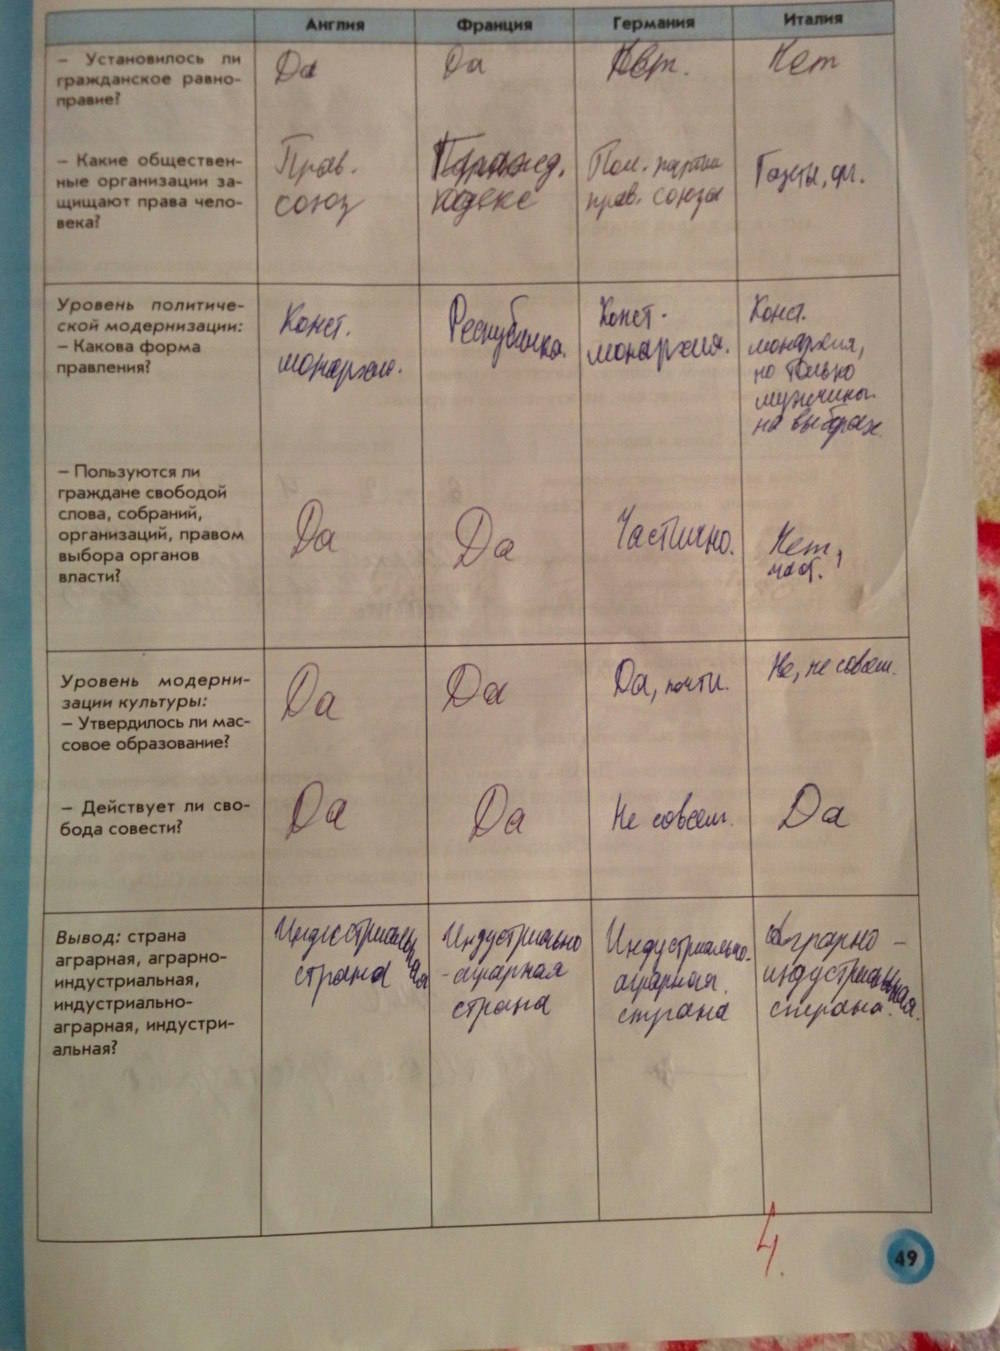 Англия Франция Германия Италия
– Установилось ли
гражданское равно-
правие?
Да Да Нет. Нет
– Какие обществен-
ные организации за-
щищают права чело-
века?
Прав.
союз
кодекс
Пол. партии
прав. союзы
Газеты,
Уровень политиче-
ской модернизации:
– Какова форма
правления?
Конст.
монархия.
Республика.
Конст.
монархия.
Конст.
монархия,
но только
мужчины
на выборах
– Пользуются ли
граждане свободой
слова, собраний,
организаций, правом
выбора органов
власти?
Да Да Частично. Нет,
Уровень модерни-
зации культуры:
– Утвердилось ли мас-
совое образование?
Да Да Да, почти. Не, не совсем.
– Действует ли сво-
бода совести?
Да Да Не совсем. Да
Вывод: страна
аграрная, аграрно-
индустриальная,
индустриально-
аграрная, индустри-
альная?
Индустриальная
страна
Индустриально
-аграрная
страна
Индустриально-
аграрная.
страна
Аграрно-
индустриальная
страна.
4
49